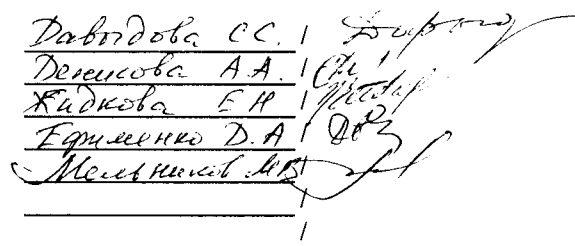 Давыдова С.С. /
Денисова А.А. /
Жидкова Е Н /
Ефименко Д.А /
Мельников М.В /
/
/